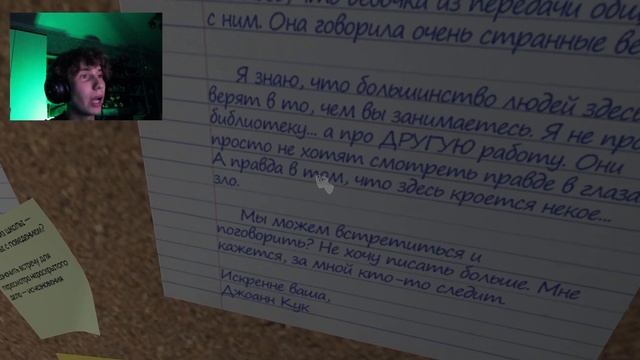 что девочки из передачи
с ним. Она говорила очень странные
Я знаю, что большинство людей здесь
верят в то, чем вы занимаетесь. Я не про
библиотеку... а про ДРУГУЮ работу. Они
просто не хотят смотреть правде в глаза
А правда в том, что здесь кроется некое...
зло.
Мы можем встретиться и
поговорить? Не хочу писать больше. Мне
кажется, за мной кто-то следит
Искренне ваша,
Джоанн Кук
школы —
с поведением?
встречу для
пересмотра нераскрытого
дела — исчезновения